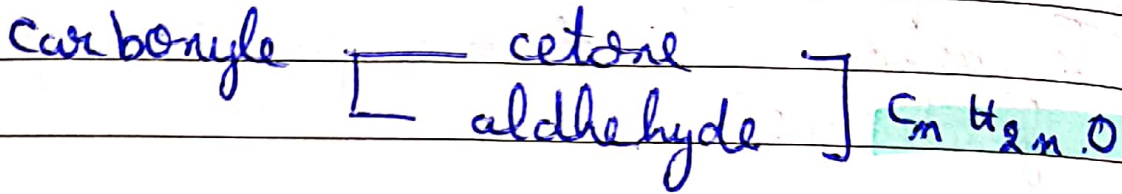 carbonyle cetone
aldhehyde CnH2n.O